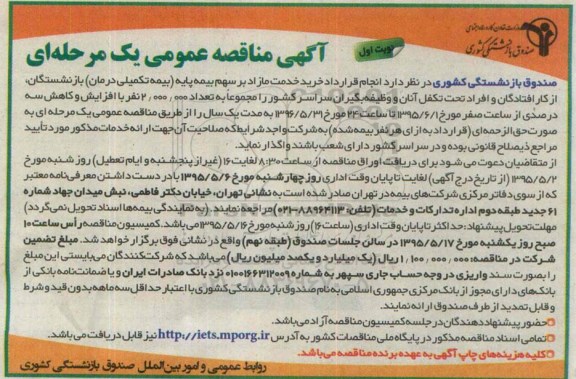 وزارت تعاون، کار و رفاه اجتماعی
صندوق بازنشستگی کشوری
نوبت اول
آگهی مناقصه عمومی یک مرحله‌ای
صندوق بازنشستگی کشوری در نظر دارد انجام قرارداد خرید خدمت مازاد بر سهم بیمه پایه (بیمه تکمیلی درمان) بازنشستگان،
از کارافتادگان و افراد تحت تکفل آنان و وظیفه‌بگیران سراسر کشور را مجموعاً به تعداد ۲,۰۰۰,۰۰۰ نفر با افزایش و کاهش سه
درصدی از ساعت صفر مورخ ۱۳۹۵/۶/۱ تا ساعت ۲۴ مورخ ۱۳۹۶/۵/۳۱ به مدت یک سال را از طریق مناقصه عمومی یک مرحله ای به
صورت حق الزحمه‌ای (قرارداد به ازای هر نفر بیمه شده) به شرکت واجد شرایط که صلاحیت آن جهت ارائه خدمات مذکور مورد تأیید
مراجع ذیصلاح قانونی بوده و در سراسر کشور دارای شعب باشند واگذار نماید.
از متقاضیان دعوت می شود برای دریافت اوراق مناقصه از ساعت ۸:۳۰ لغایت ۱۶ (غیر از پنجشنبه و ایام تعطیل) روز شنبه مورخ
۱۳۹۵/۵/۲ (از تاریخ درج آگهی) لغایت تا پایان وقت اداری روز چهارشنبه مورخ ۱۳۹۵/۵/۶ با در دست داشتن معرفی‌نامه معتبر
که از سوی دفاتر مرکزی شرکت‌های بیمه در تهران صادر شده است به نشانی تهران، خیابان دکتر فاطمی، نبش میدان جهاد شماره
۶۱ جدید طبقه دوم اداره تدارکات و خدمات (تلفن ۸۸۹۶۲۱۱۳-۰۲۱) مراجعه نمایند. (به نمایندگی بیمه‌ها اسناد تحویل نمی‌گردد)
مهلت تحویل پیشنهاد: حداکثر تا پایان وقت اداری (ساعت ۱۶) روز شنبه مورخ ۱۳۹۵/۵/۱۶ می باشد. کمیسیون مناقصه رأس ساعت ۱۰
صبح روز یکشنبه مورخ ۱۳۹۵/۵/۱۷ در سالن جلسات صندوق (طبقه نهم) واقع در نشانی فوق برگزار خواهد شد. مبلغ تضمین
شرکت در مناقصه: ۱,۱۰۰,۰۰۰,۰۰۰ ریال (یک میلیارد و یکصد میلیون ریال) می‌باشد که شرکت‌کنندگان می‌بایستی این مبلغ
را بصورت سند واریزی در وجه حساب جاری سپهر به شماره ۰۱۰۱۶۶۳۱۲۰۰۹ نزد بانک صادرات ایران و یا ضمانت‌نامه بانکی از
بانک‌های دارای مجوز از بانک مرکزی جمهوری اسلامی به نام صندوق بازنشستگی کشوری با اعتبار حداقل سه ماهه بدون قید و شرط
و قابل تمدید از طرف صندوق ارائه نمایند.
حضور پیشنهاد دهندگان در جلسه کمیسیون مناقصه آزاد می‌باشد.
تمامی اسناد مناقصه مذکور در پایگاه ملی مناقصات کشور به آدرس http://iets.mporg.ir نیز قابل دریافت می باشد.
کلیه هزینه‌های چاپ آگهی به عهده برنده مناقصه می‌باشد.
روابط عمومی و امور بین‌الملل صندوق بازنشستگی کشوری